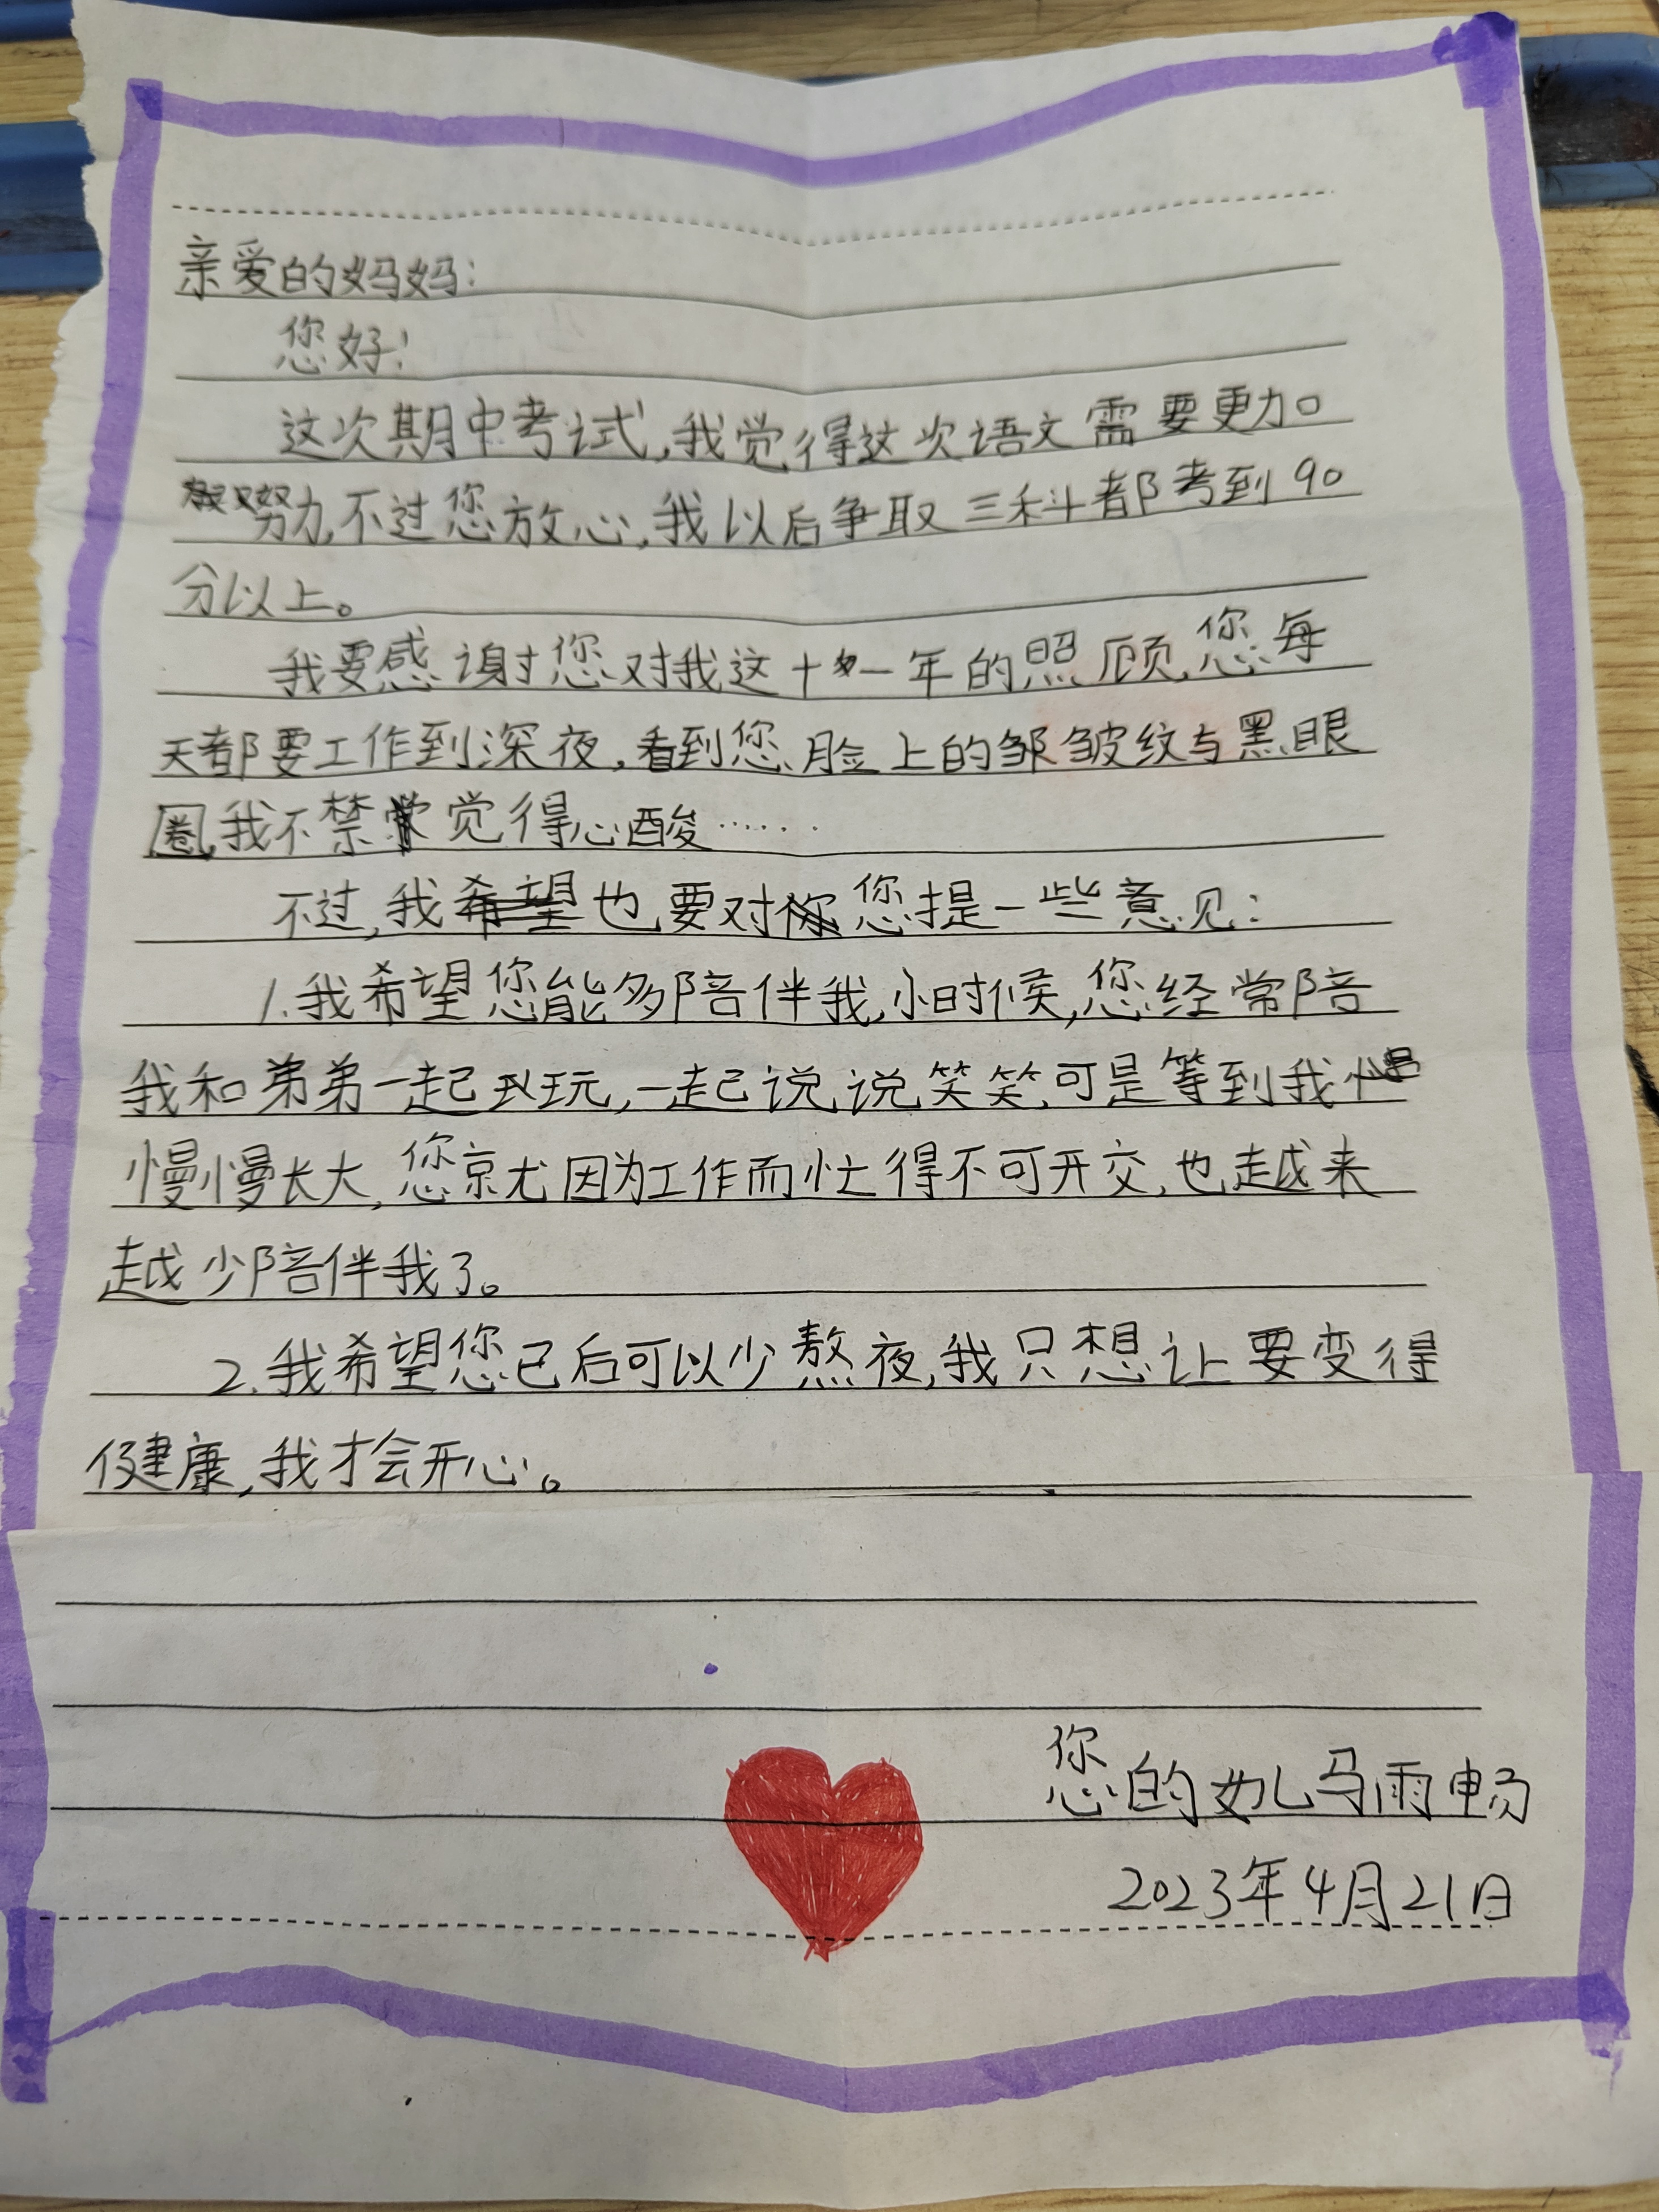 亲爱的妈妈：
您好！
这次期中考试，我觉得这次语文需要更加
努力，不过您放心，我以后争取三科都考到90
分以上。
我要感谢您对我这十一年的照顾，您每
天都要工作到深夜，看到您脸上的邹皱纹与黑眼
圈，我不禁觉得心酸……
不过，我也要对您提一些意见：
1.我希望您能多陪伴我，小时候，您经常陪
我和弟弟一起玩，一起说说笑笑，可是等到我
慢慢长大，您就因为工作而忙得不可开交，也越来
越少陪伴我了。
2.我希望您已后可以少熬夜，我只想让要变得
健康，我才会开心。
您的女儿马雨畅
2023年4月21日